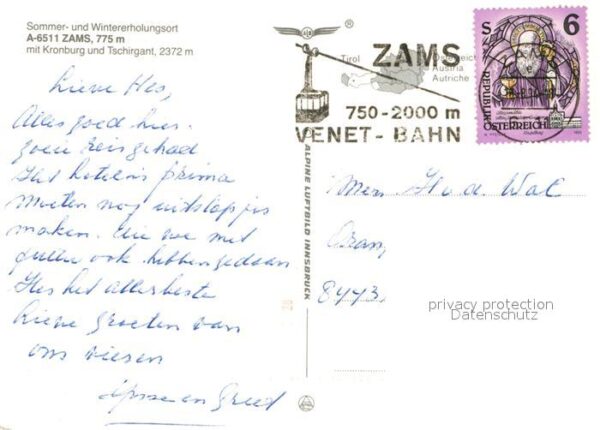 Sommer- und Wintererholungsort
A-6511 ZAMS, 775 m
mit Kronburg und Tschirgant, 2372 m
Lieve Hes,
Alles goed hier.
goeie reis gehad
Het hotel is prima
Moeten nog uitstapjes
maken. die we met
jullie ook hebben gedaan
Hes het allerbeste
Lieve groeten van
ons
en Greet
ALPINE LUFTBILD INNSBRUCK
Tirol
Österreich
Austria
Autriche
ZAMS
750-2000 m
VENET-BAHN
S 6
REPUBLIK
ÖSTERREICH
ZAMS
6511
v. d. Wal
8443
privacy protection
Datenschutz